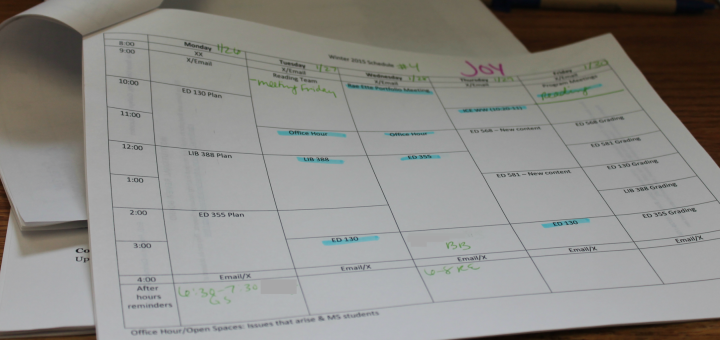 Winter 2015 Schedule #4
JOY
Monday 1/26
Tuesday 1/27
Wednesday
Thursday 1/29
Friday 1/30
8:00
XX
X/Email
X/Email
X/Email
X/Email
Program Meetings
9:00
X/Email
Reading Team
Meeting Friday
Reading
10:00
ED 130 Plan
11:00
Office Hour
Office Hour
ED 568 – New content
ED 568 Grading
ED 581 Grading
12:00
LIB 388 Plan
LIB 388
ED 355
1:00
ED 581 – New content
ED 130 Grading
LIB 388 Grading
2:00
ED 355 Plan
ED 130
ED 355 Grading
3:00
ED 130
BB
4:00
Email/X
Email/X
Email/X
Email/X
Email/X
After
hours
reminders
6:30-7:30
GS
6-8
Office Hour/Open Spaces: Issues that arise & MS students
Co
Up